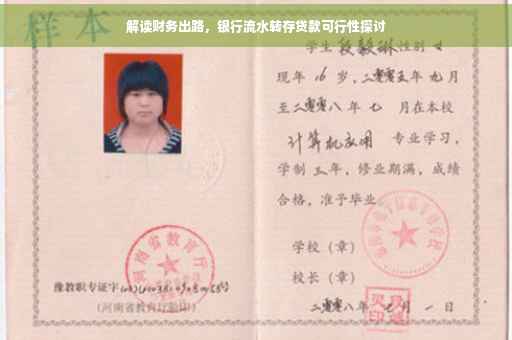 解读财务出路，银行流水转存贷款可行性探讨
样本
学生段毅琳性别女
现年16岁，二零零五年九月
至二零零八年七月在本校
计算机应用 专业学习，
学制三年，修业期满，成绩
合格，准予毕业
学校（章）
校长（章）
二零零八年七月一日
河南省教育厅
豫教职专证字
（河南省教育厅验印）